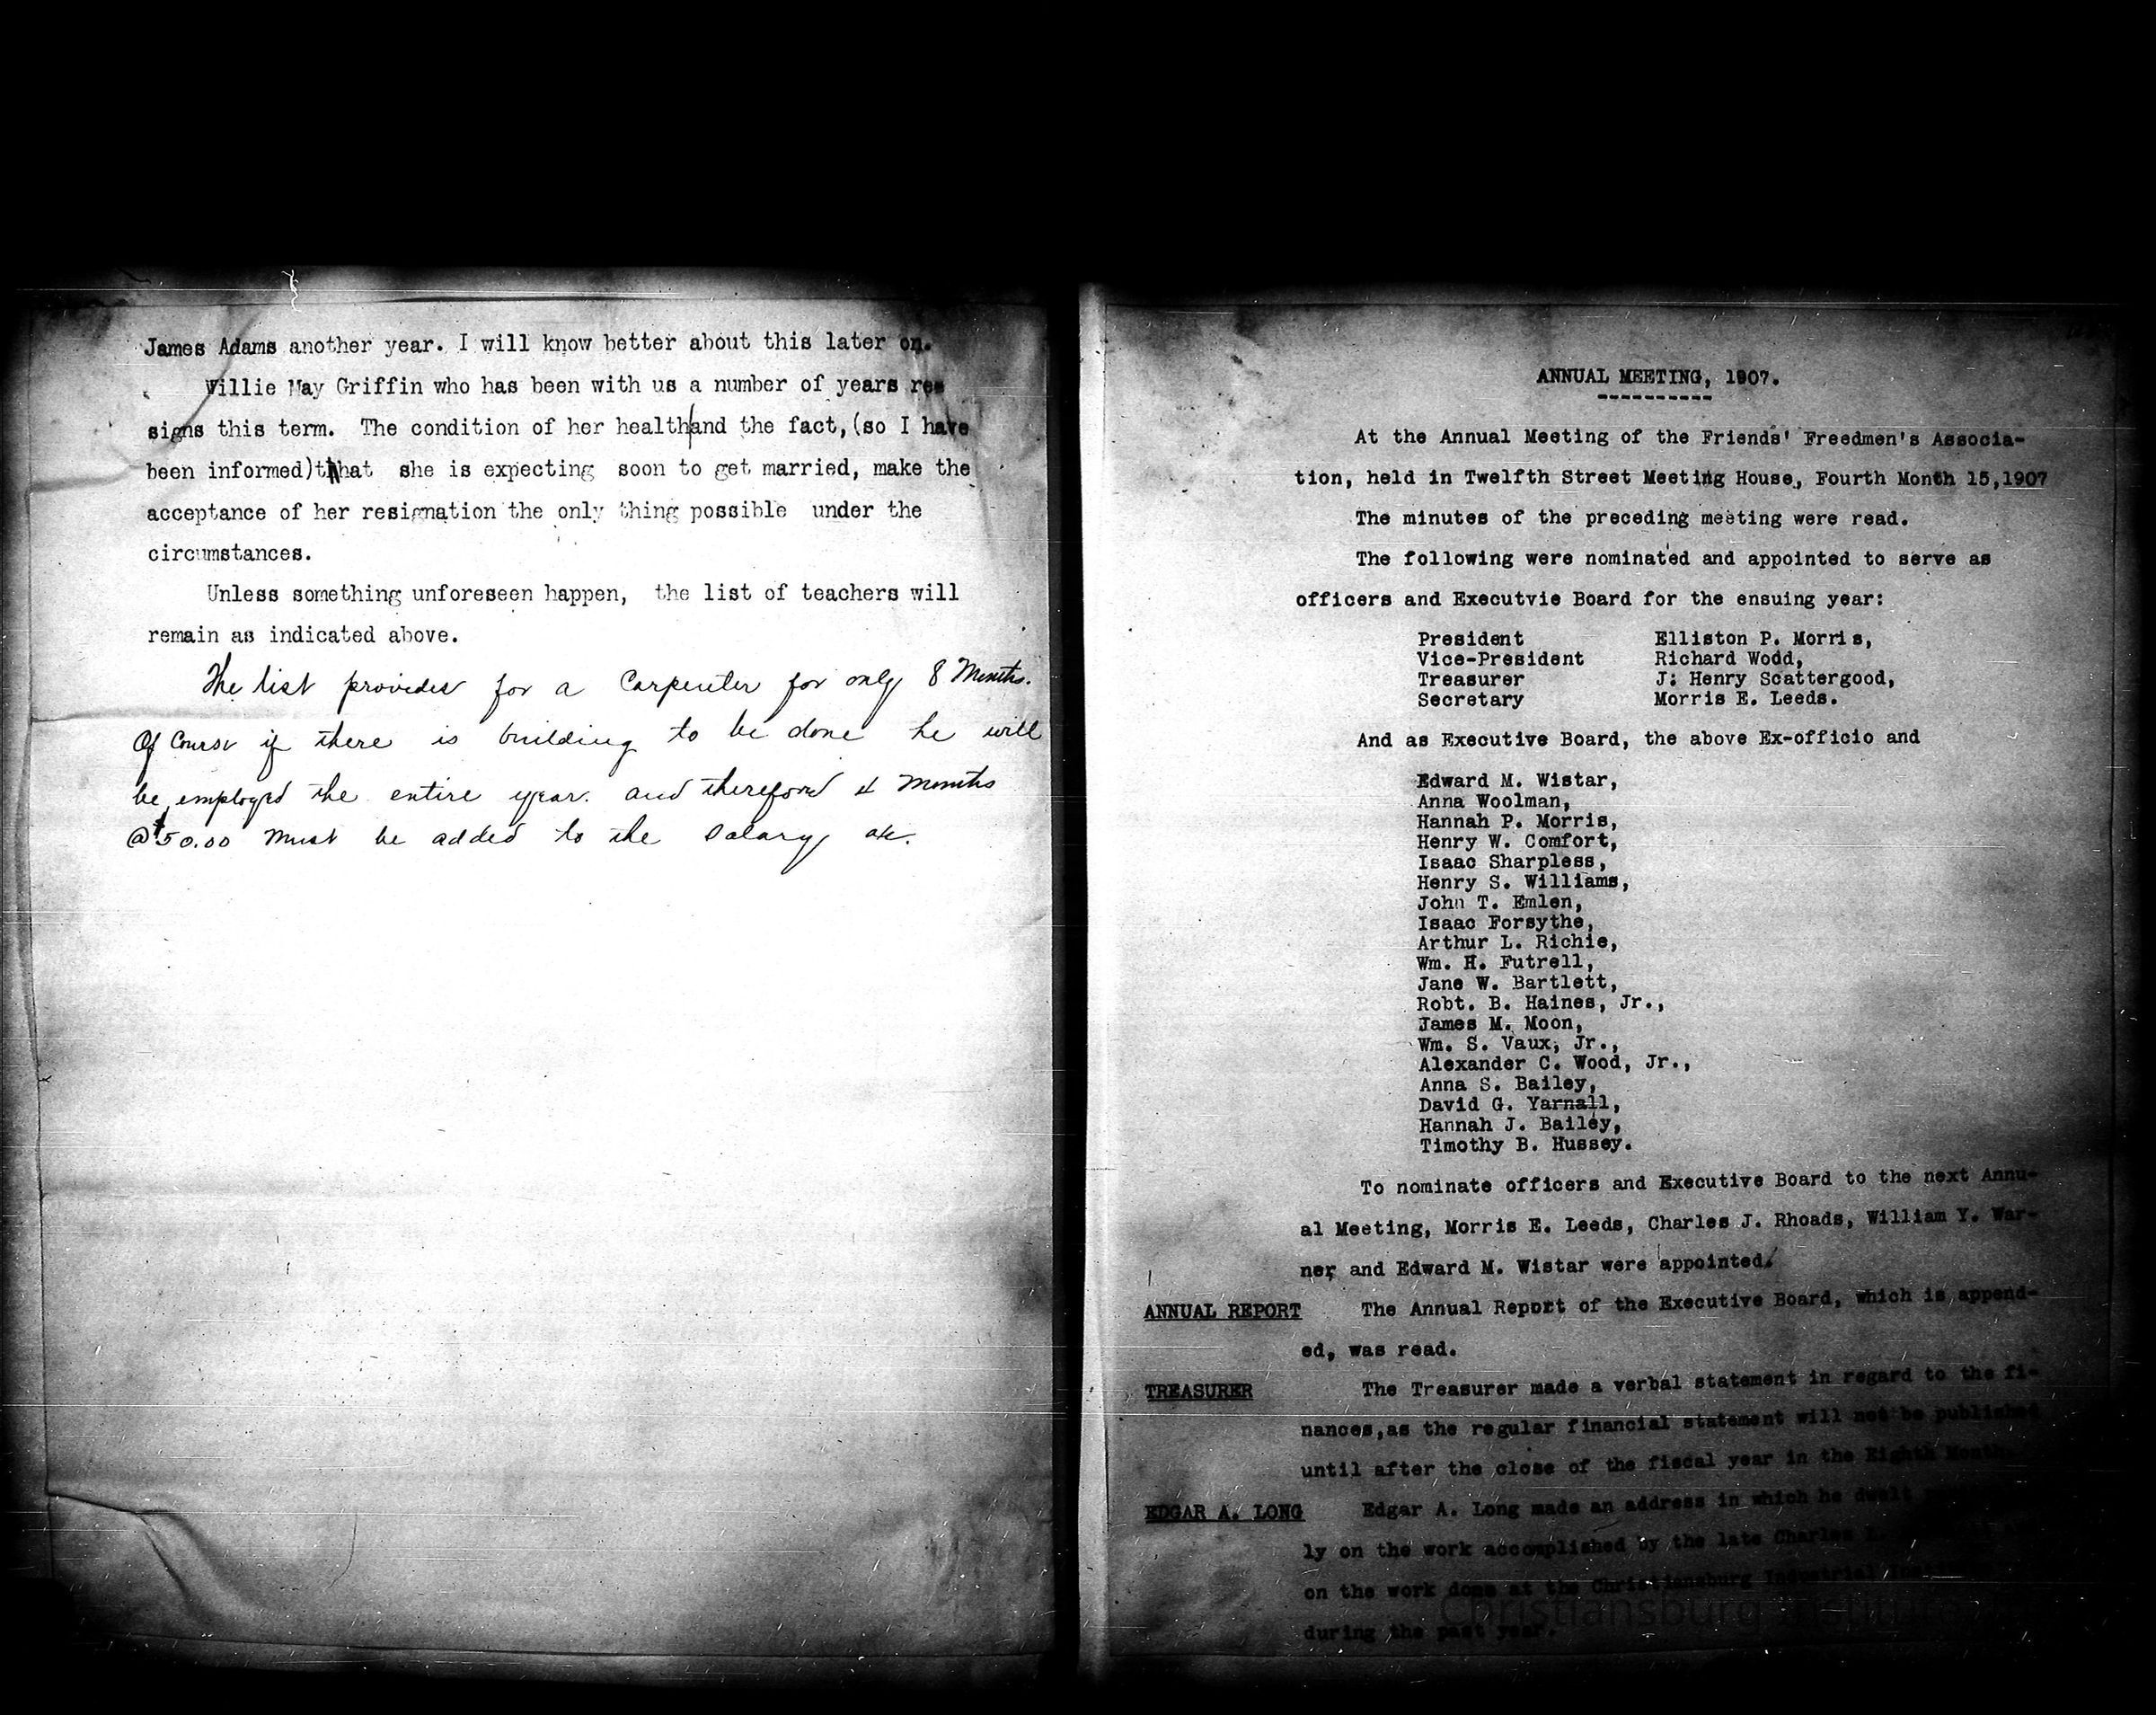 James Adams another year. I will know better about this later on.
Willie May Griffin who has been with us a number of years res
signs this term. The condition of her health and the fact, (so I have
been informed) that she is expecting soon to get married, make the
acceptance of her resignation the only thing possible under the
circumstances.
Unless something unforeseen happen, the list of teachers will
remain as indicated above.
The list provides for a Carpenter for only 8 Months.
Of Course if there is building to be done he will
be employed the entire year. and therefore 4 Months
@ $50.00 must be added to the Salary
ANNUAL MEETING, 1907.
----------
At the Annual Meeting of the Friends' Freedmen's Associa-
tion, held in Twelfth Street Meeting House, Fourth Month 15, 1907
The minutes of the preceding meeting were read.
The following were nominated and appointed to serve as
officers and Executvie Board for the ensuing year:
President Elliston P. Morris,
Vice-President Richard Wodd,
Treasurer J: Henry Scattergood,
Secretary Morris E. Leeds.
And as Executive Board, the above Ex-officio and
Edward M. Wistar,
Anna Woolman,
Hannah P. Morris,
Henry W. Comfort,
Isaac Sharpless,
Henry S. Williams,
John T. Emlen,
Isaac Forsythe,
Arthur L. Richie,
Wm. H. Futrell,
Jane W. Bartlett,
Robt. B. Haines, Jr.,
James M. Moon,
Wm. S. Vaux, Jr.,
Alexander C. Wood, Jr.,
Anna S. Bailey,
David G. Yarnall,
Hannah J. Bailey,
Timothy B. Hussey.
To nominate officers and Executive Board to the next Annu-
al Meeting, Morris E. Leeds, Charles J. Rhoads, William Y. War-
ner and Edward M. Wistar were appointed.
ANNUAL REPORT The Annual Report of the Executive Board, which is append-
ed, was read.
TREASURER The Treasurer made a verbal statement in regard to the fi-
nances, as the regular financial statement will not be published
until after the close of the fiscal year in the Eighth Month.
EDGAR A. LONG Edgar A. Long made an address in which he dwelt
ly on the work accomplished by the late Charles
on the work done at the Christiansburg Industrial
during the past year.
Christiansburg Institute